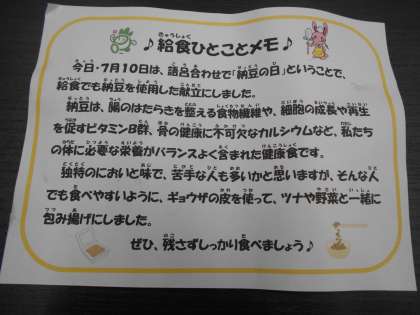 ♪給食ひとことメモ♪
今日・7月10日は、語呂合わせで「納豆の日」ということで、
給食でも納豆を使用した献立にしました。
納豆は、腸のはたらきを整える食物繊維や、細胞の成長や再生
を促すビタミンB群、骨の健康に不可欠なカルシウムなど、私たち
の体に必要な栄養がバランスよく含まれた健康食です。
独特のにおいと味で、苦手な人も多いかと思いますが、そんな人
でも食べやすいように、ギョウザの皮を使って、ツナや野菜と一緒に
包み揚げにしました。
ぜひ、残さずしっかり食べましょう♪